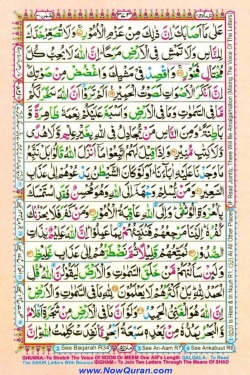 عَلٰى مَاۤ اَصَابَكَ اِنَّ ذٰلِكَ مِنْ عَزْمِ الْاُمُوْرِ وَلَا تُصَعِّرْ خَدَّكَ
لِلنَّاسِ وَلَا تَمْشِ فِى الْاَرْضِ مَرَحًا اِنَّ اللّٰهَ لَا يُحِبُّ كُلَّ
مُخْتَالٍ فَخُوْرٍ وَاقْصِدْ فِيْ مَشْيِكَ وَاغْضُضْ مِنْ صَوْتِكَ
اِنَّ اَنْكَرَ الْاَصْوَاتِ لَصَوْتُ الْحَمِيْرِ اَلَمْ تَرَوْا اَنَّ اللّٰهَ سَخَّرَ لَكُمْ
مَّا فِى السَّمٰوٰتِ وَمَا فِى الْاَرْضِ وَاَسْبَغَ عَلَيْكُمْ نِعَمَهٗ ظَاهِرَةً وَّ
بَاطِنَةً وَمِنَ النَّاسِ مَنْ يُّجَادِلُ فِى اللّٰهِ بِغَيْرِ عِلْمٍ وَّلَا هُدًى
وَّلَا كِتٰبٍ مُّنِيْرٍ وَاِذَا قِيْلَ لَهُمُ اتَّبِعُوْا مَاۤ اَنْزَلَ اللّٰهُ قَالُوْا بَلْ نَتَّبِعُ
مَا وَجَدْنَا عَلَيْهِ اٰبَآءَنَا اَوَلَوْ كَانَ الشَّيْطٰنُ يَدْعُوْهُمْ اِلٰى عَذَابِ
السَّعِيْرِ وَمَنْ يُّسْلِمْ وَجْهَهٗۤ اِلَى اللّٰهِ وَهُوَ مُحْسِنٌ فَقَدِ اسْتَمْسَكَ
بِالْعُرْوَةِ الْوُثْقٰى وَاِلَى اللّٰهِ عَاقِبَةُ الْاُمُوْرِ وَمَنْ كَفَرَ فَلَا يَحْزُنْكَ
كُفْرُهٗ اِلَيْنَا مَرْجِعُهُمْ فَنُنَبِّئُهُمْ بِمَا عَمِلُوْا اِنَّ اللّٰهَ عَلِيْمٌۢ بِذَاتِ
الصُّدُوْرِ نُمَتِّعُهُمْ قَلِيْلًا ثُمَّ نَضْطَرُّهُمْ اِلٰى عَذَابٍ غَلِيْظٍ
وَلَئِنْ سَاَلْتَهُمْ مَّنْ خَلَقَ السَّمٰوٰتِ وَالْاَرْضَ لَيَقُوْلُنَّ اللّٰهُ قُلِ
الْحَمْدُ لِلّٰهِ بَلْ اَكْثَرُهُمْ لَا يَعْلَمُوْنَ لِلّٰهِ مَا فِى السَّمٰوٰتِ وَالْاَرْضِ
اِنَّ اللّٰهَ هُوَ الْغَنِىُّ الْحَمِيْدُ وَلَوْ اَنَّ مَا فِى الْاَرْضِ مِنْ شَجَرَةٍ
اَقْلَامٌ وَّالْبَحْرُ يَمُدُّهٗ مِنْۢ بَعْدِهٖ سَبْعَةُ اَبْحُرٍ مَّا نَفِدَتْ كَلِمٰتُ اللّٰهِ
See Baqarah R34
See An-Aam R7
See Ankabuut R6
GHUNNA:-To Stretch The Voice Of NOON Or MEEM One Alif's Length
IDGHAM:- To Join Two Letters Through The Means Of SHAD
www.NowQuran.com